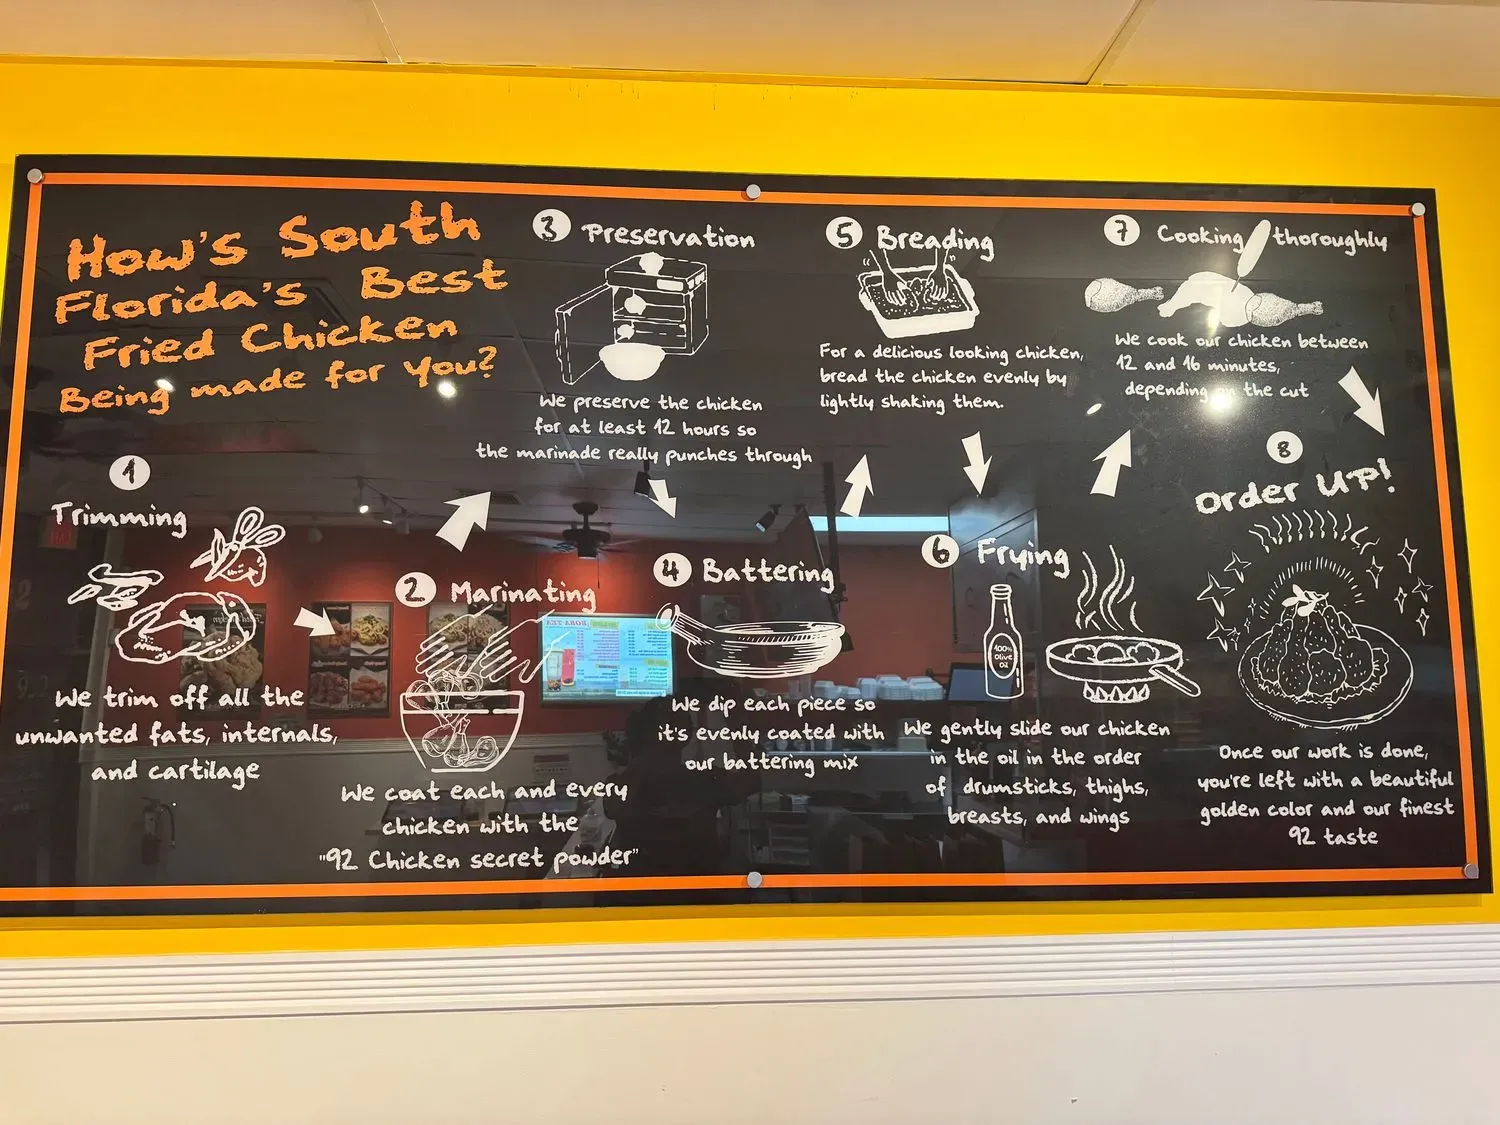 How's South
Florida's Best
Fried Chicken
Being made for you?
1
Trimming
We trim off all the
unwanted fats, internals,
and cartilage
2
Marinating
We coat each and every
chicken with the
"92 Chicken secret powder"
3
Preservation
We preserve the chicken
for at least 12 hours so
the marinade really punches through
4
Battering
We dip each piece so
it's evenly coated with
our battering mix
5
Breading
For a delicious looking chicken,
bread the chicken evenly by
lightly shaking them.
6
Frying
100%
Olive
Oil
We gently slide our chicken
in the oil in the order
of drumsticks, thighs,
breasts, and wings
7
Cooking thoroughly
We cook our chicken between
12 and 16 minutes,
depending on the cut
8
Order UP!
Once our work is done,
you're left with a beautiful
golden color and our finest
92 taste
BOBA TEA